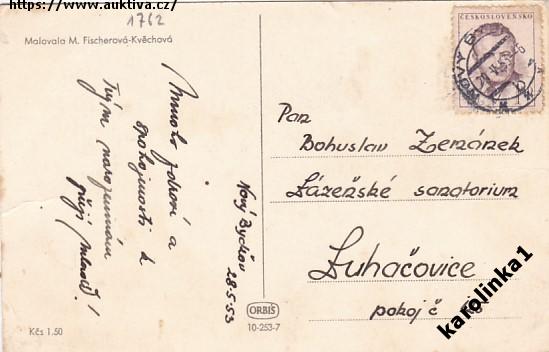 https://www.auktiva.cz/
1762
Malovala M. Fischerová-Kvěchová
ČESKOSLOVENSKO
NOVÝ BYDŽOV
Mnoho zdraví a
spokojenosti k
Tvým narozeninám
přejí
Nový Bydžov
28-5-53
Pan
Bohuslav Zemánek
Lázeňské sanatorium
Luhačovice
pokoj č
ORBIS
10-253-7
Kčs 1.50
karolinka1